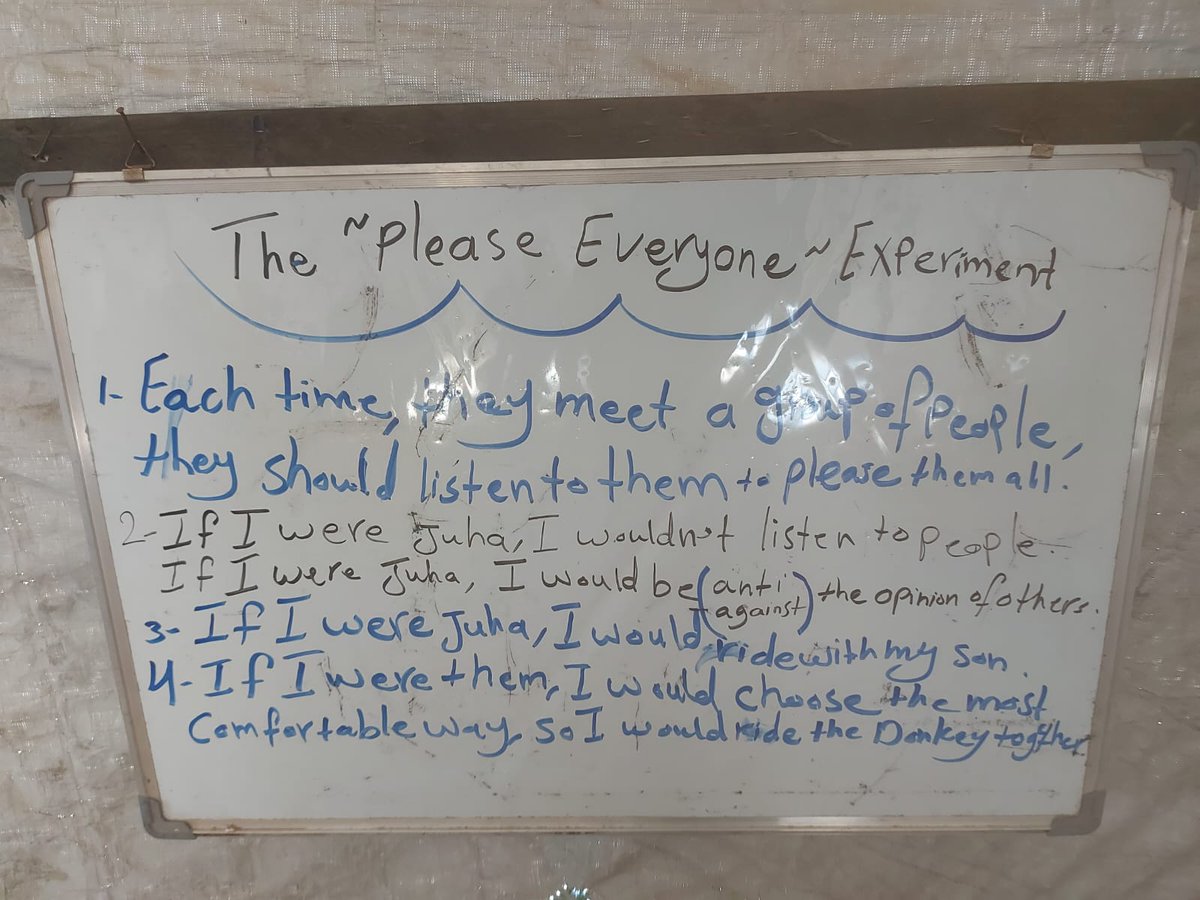 The ~Please Everyone~ Experiment
1- Each time, they meet a group of People,
they should listen to them to please them all.
2- If I were Juha, I wouldn't listen to people.
If I were Juha, I would be (anti against) the opinion of others.
3- If I were Juha, I would ride with my son.
4- If I were them, I would choose the most
Comfortable way, so I would ride the Donkey togther.